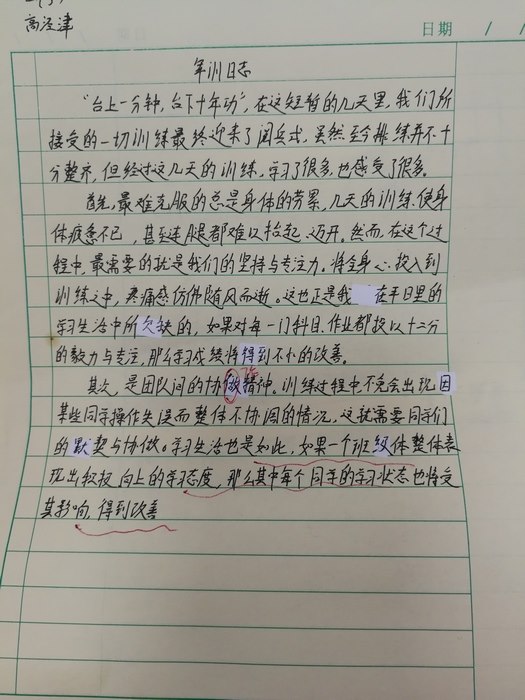 高泾津
日期 / /
军训日志
"台上一分钟,台下十年功",在这短暂的几天里,我们所
接受的一切训练最终迎来了阅兵式,虽然至今排练并不十
分整齐,但经过这几天的训练,学习了很多,也感受了很多。
首先,最难克服的总是身体的劳累,几天的训练使身
体疲惫不已,甚至连腿都难以抬起、迈开。然而,在这个过
程中,最需要的就是我们的坚持与专注力。将全身心投入到
训练之中,疼痛感仿佛随风而逝。这也正是我 在平日里的
学习生活中所欠缺的,如果对每一门科目、作业都投以十二分
的毅力与专注,那么学习成绩将得到不小的改善。
其次,是团队间的协做精神。训练过程中不免会出现因
某些同学操作失误而整体不协调的情况,这就需要同学们
的默契与协做。学习生活也是如此,如果一个班级体整体表
现出积极向上的学习态度,那么其中每个同学的学习状态也将受
其影响,得到改善